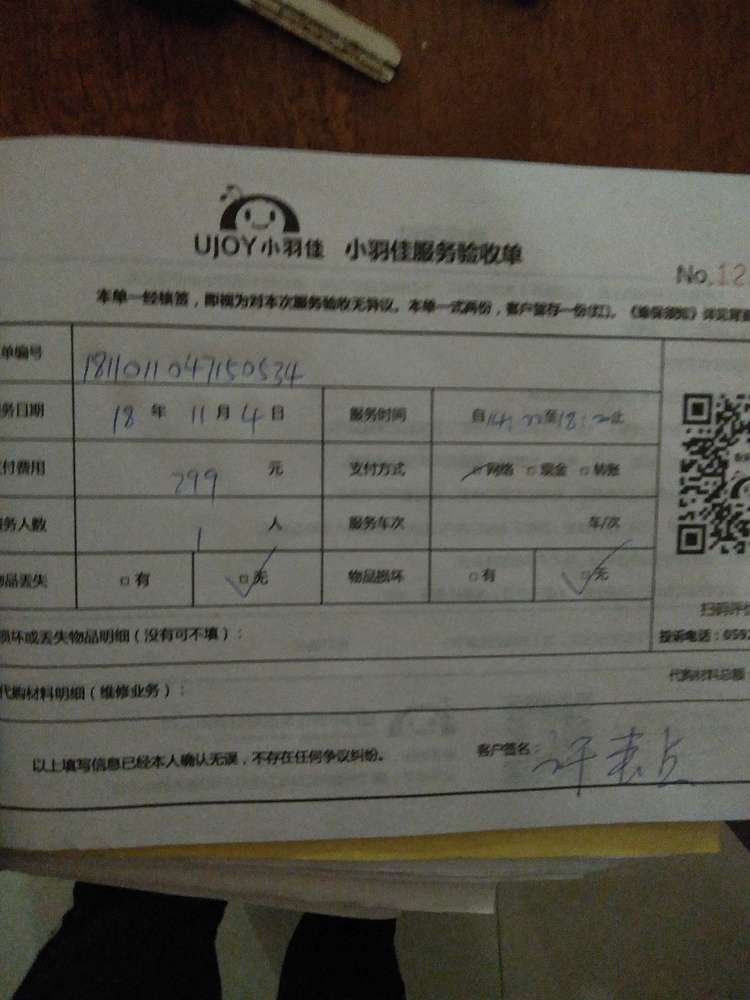 UJOY小羽佳 小羽佳服务验收单
No.12
本单一经镇签，即视为对本次服务验收无异议。本单一式两份，客户留存一份(红)。《维保须知》详见背面
单编号 1811011047150534
务日期 18 年 11 月 4 日 服务时间 自14:22至18:20止
付费用 299 元 支付方式 网络 现金 转账
务人数 1 人 服务车次 车/次
物品丢失 有 无 物品损坏 有 无
扫码评价
损坏或丢失物品明细（没有可不填）： 投诉电话：0592
代购材料明细（维修业务）： 代购材料总额
以上填写信息已经本人确认无误，不存在任何争议纠纷。 客户签名：许